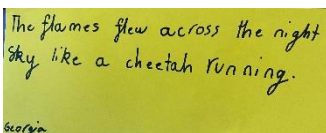 The flames flew across the night
sky like a cheetah running.
Georgia